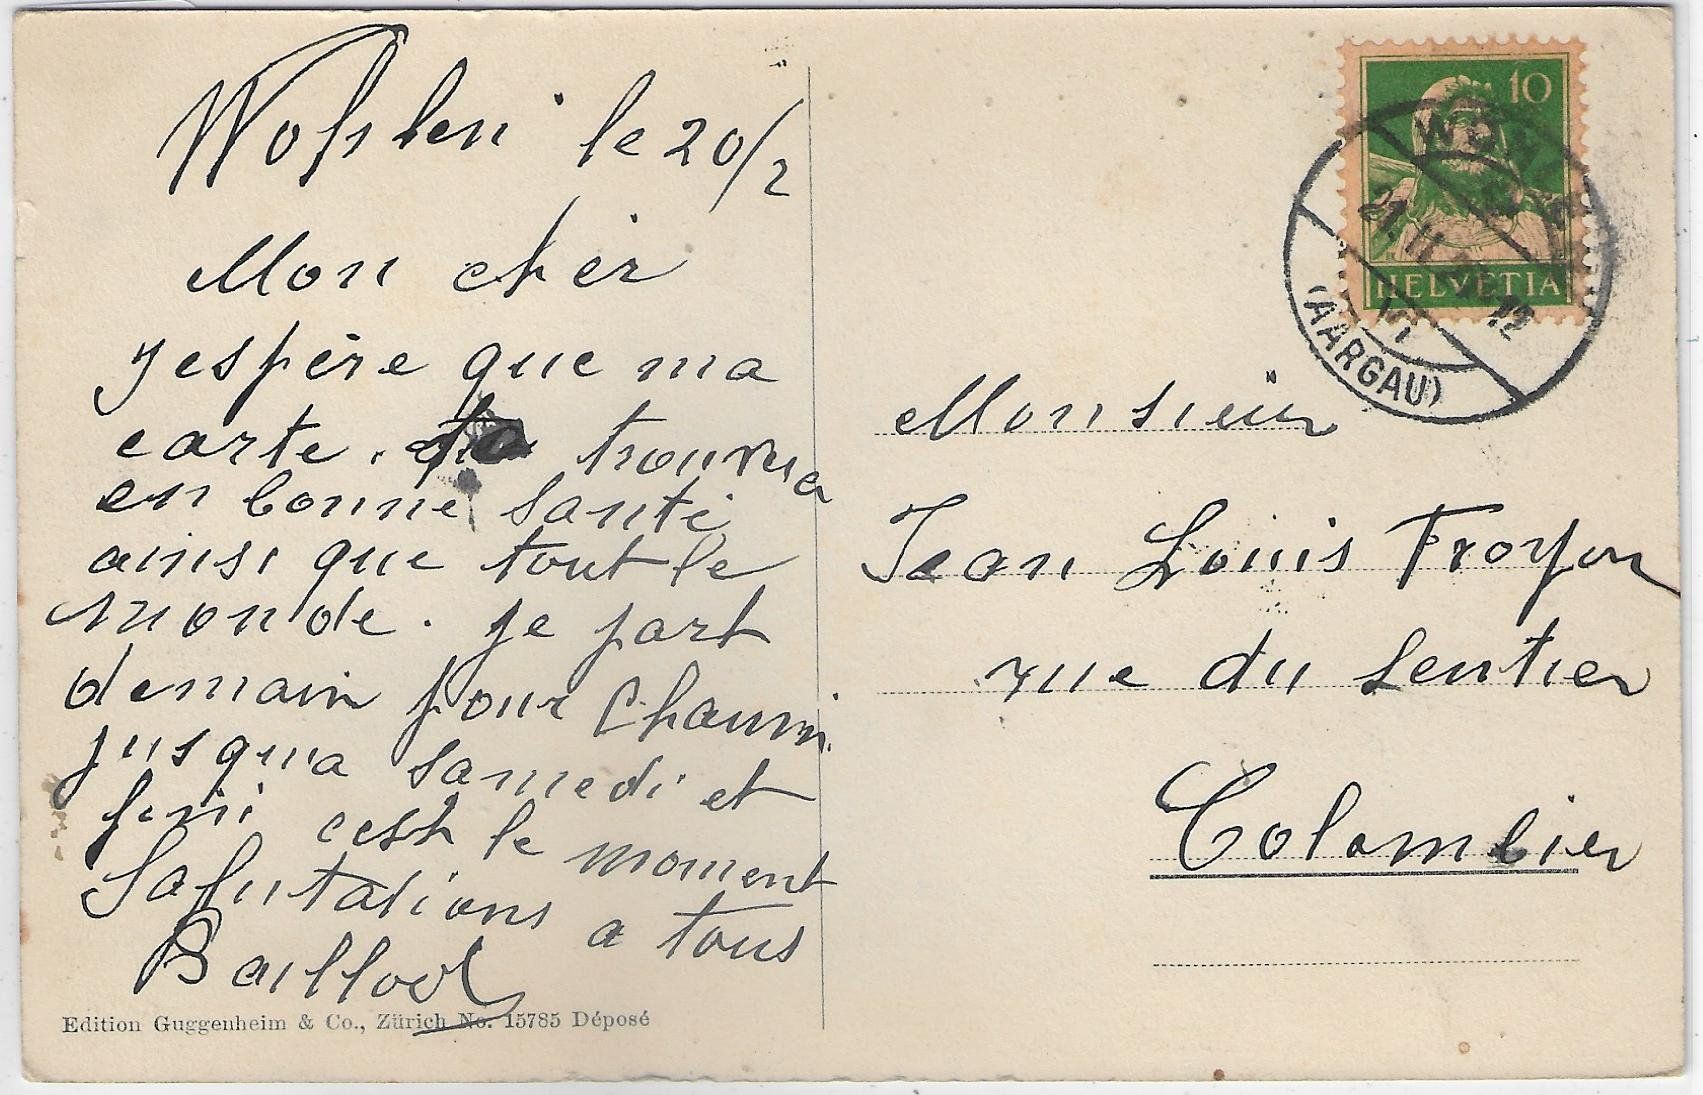 Wohlen le 20/2
Mon cher
j espère que ma
carte. te trouvera
en bonne santé
ainsi que tout le
monde. je part
demain pour Chaumi
jusqua samedi et
fini cest le moment
Salutations a tous
Baillod
Edition Guggenheim & Co., Zürich No. 15785 Déposé
10
HELVETIA
21.II. 12
VI
(AARGAU)
Monsieur
Jean Louis Troyon
rue du Sentier
Colombier